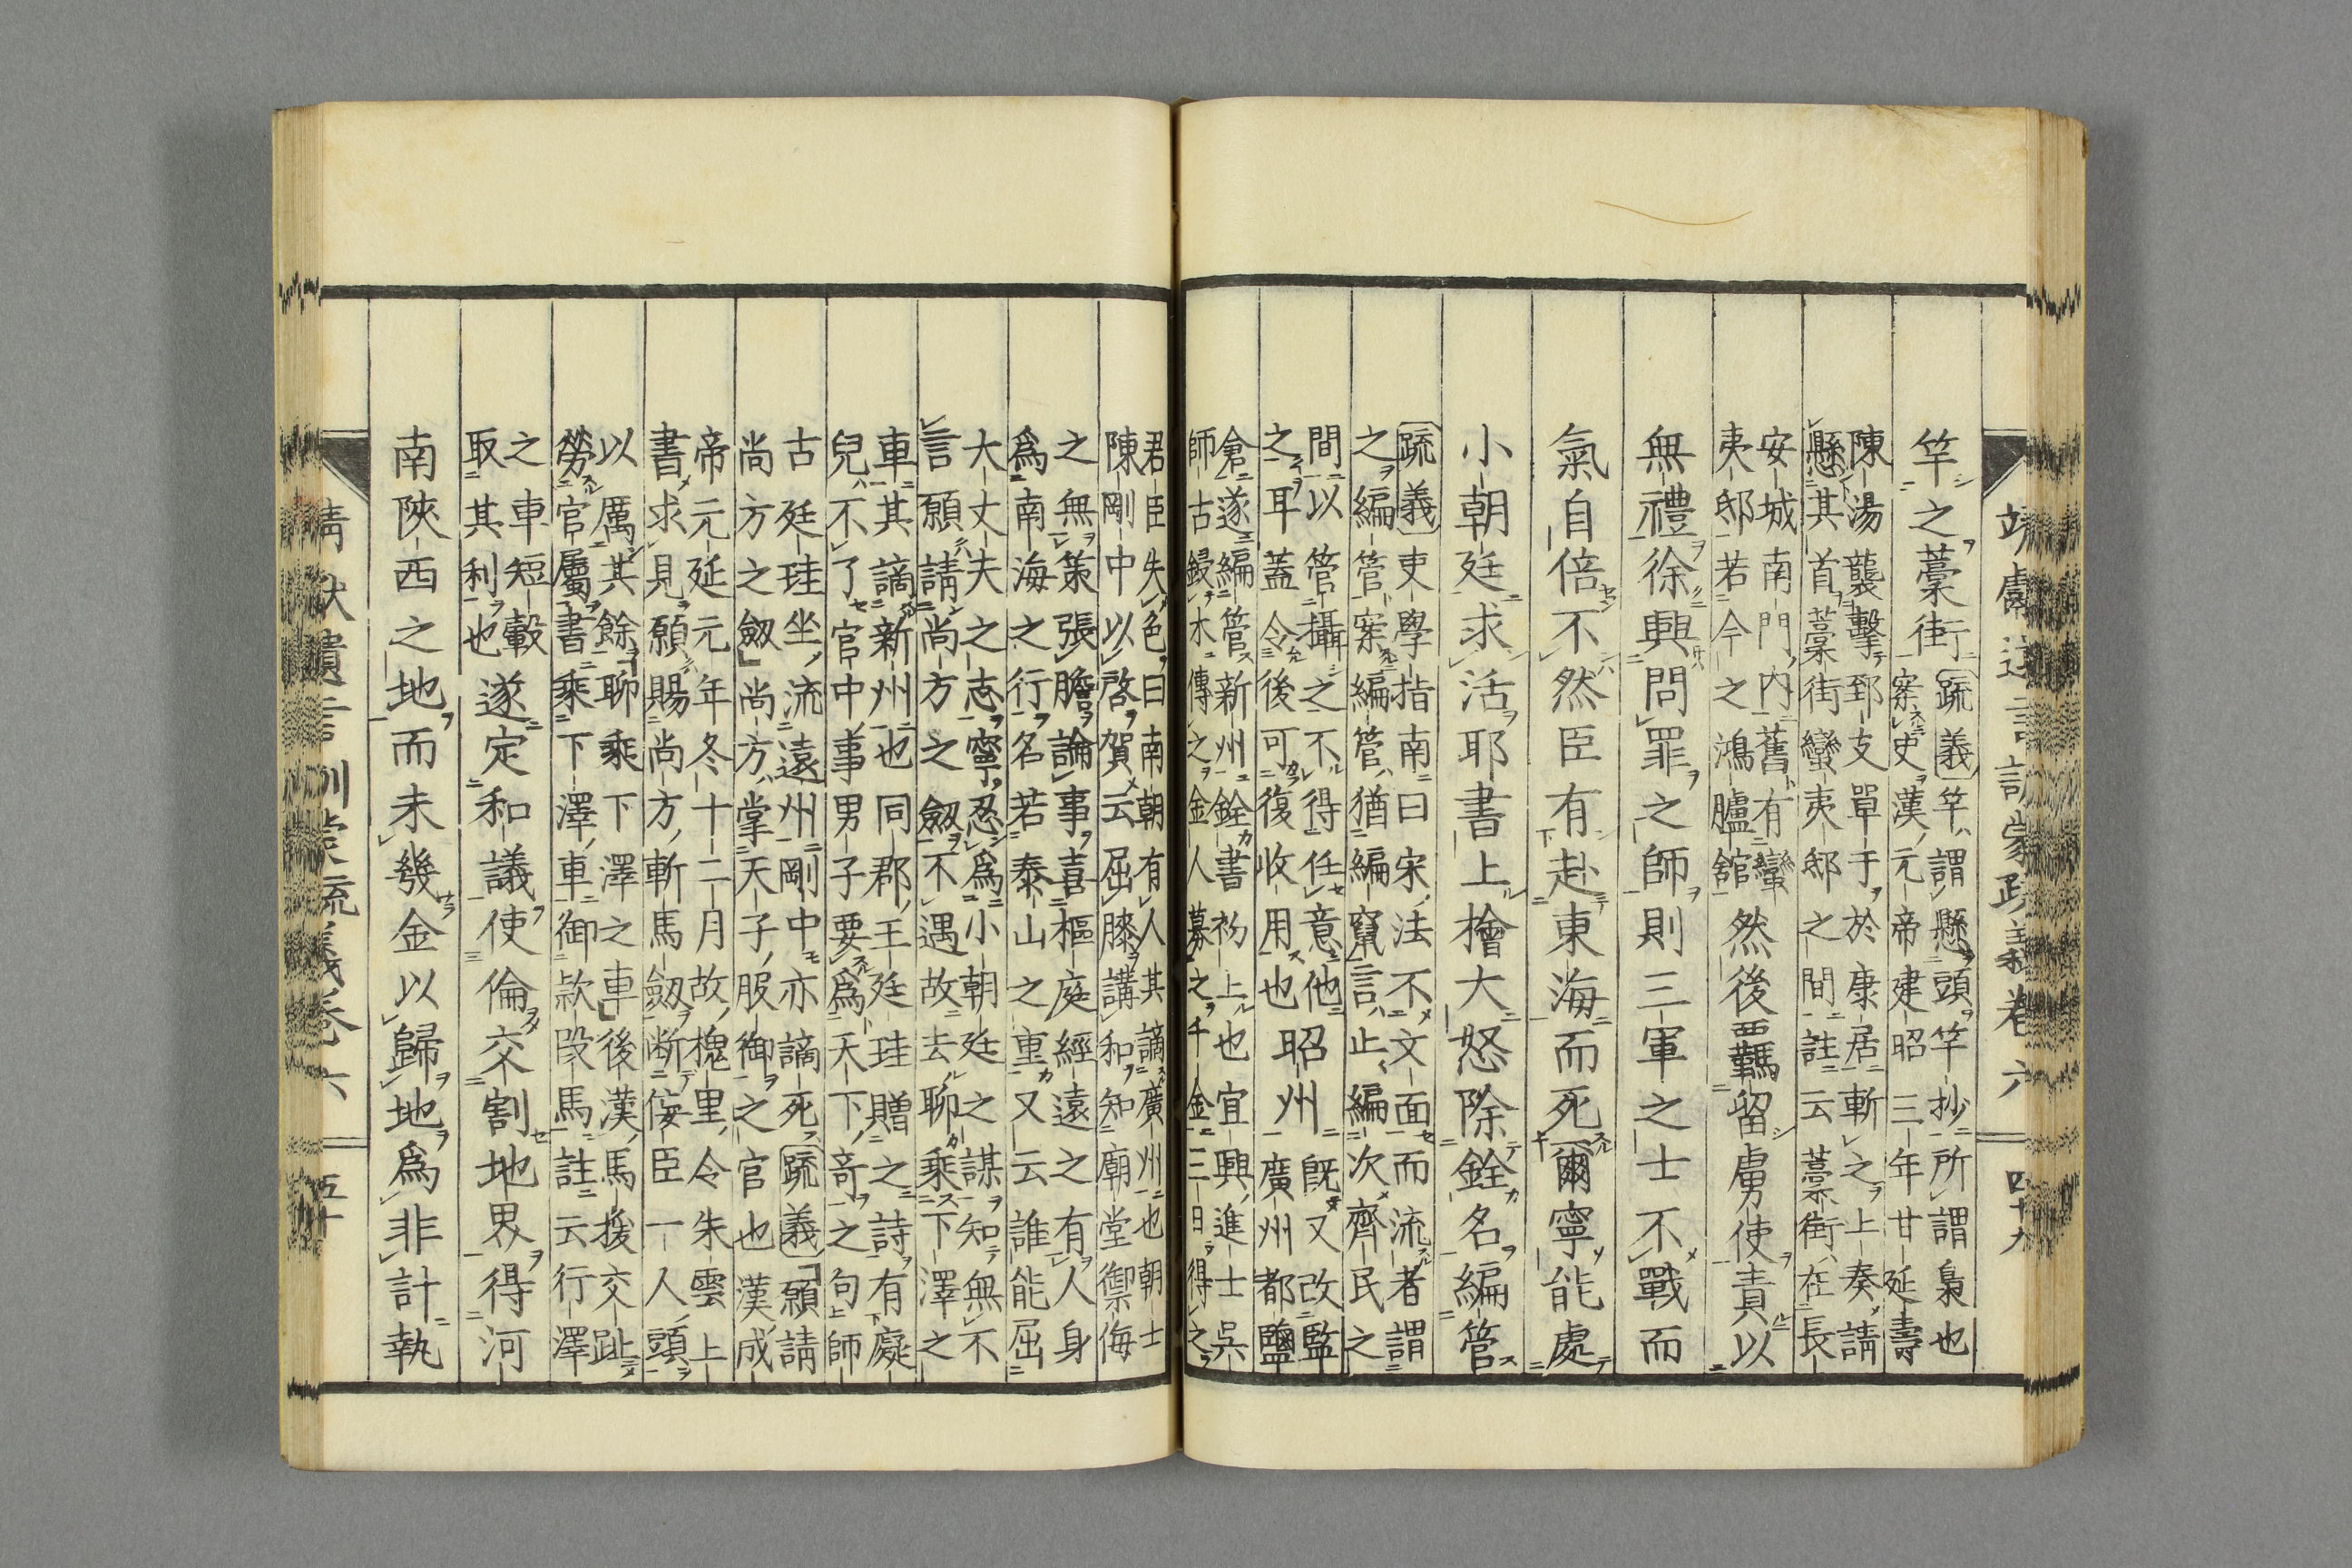 靖獻遺言訓蒙疏義卷六 四十九
竿之藁街〔疏義〕竿ハ謂懸頭竿抄所謂梟也
案史漢元帝建昭三年甘延壽
陳湯襲擊郅支單于於康居斬之上奏請
懸其首藁街蠻夷邸之間註云藁街在長
安城南門内舊有蠻
夷邸若今之鴻臚舘然後羈留虜使責以
無禮徐興問罪之師則三軍之士不戰而
氣自倍不然臣有赴東海而死爾寧能處
小朝廷求活耶書上檜大怒除銓名編管
〔疏義〕吏學指南曰宋法不文面而流者謂
之編管案編管猶編竄言止編次齊民之
間以管攝之不得任意他
之耳蓋令後可復收用也昭州既又改監
廣州都鹽
倉遂編管新州銓書初上也宜興進士吳
師古鋟木傳之金人募之千金三日得之
君臣失色曰南朝有人其謫廣州也朝士
陳剛中以啓賀云屈膝講和知廟堂禦侮
之無策張膽論事喜樞庭經遠之有人身
爲南海之行名若泰山之重又云誰能屈
大丈夫之志寧忍爲小朝廷之謀知無不
言願請尚方之劔不遇故去聊乘下澤之
車其謫新州也同郡王廷珪贈之詩有處
兒不了官中事男子要爲天下奇之句師
古廷珪坐流遠州剛中亦謫死〔疏義〕願請
尚方之劔尚方掌天子服御之官也漢成
帝元延元年冬十二月故槐里令朱雲上
書求見願賜尚方斬馬劔斷佞臣一人頭
以厲其餘聊乘下澤之車後漢馬援交趾
勞官屬書乘下澤車御欵段馬註云行澤
之車短轂
取其利也遂定和議使倫交割地界得河
南陝西之地而未幾金以歸地爲非計執
靖獻遺言訓蒙疏義卷六 五十